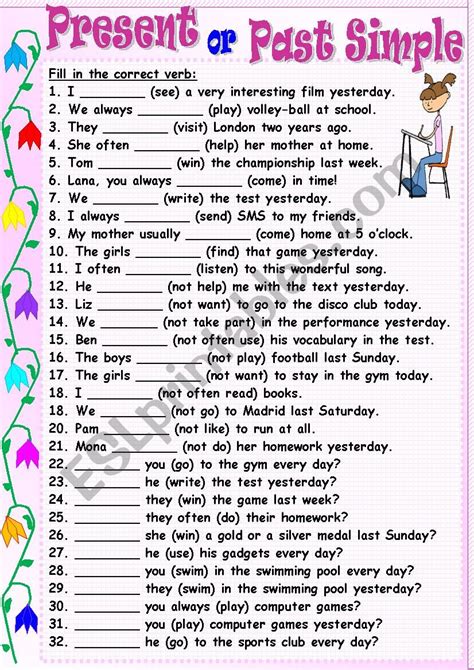 Present or Past Simple
Fill in the correct verb:
1. I __________ (see) a very interesting film yesterday.
2. We always _________ (play) volley-ball at school.
3. They _________ (visit) London two years ago.
4. She often _________ (help) her mother at home.
5. Tom __________ (win) the championship last week.
6. Lana, you always __________ (come) in time!
7. We _________ (write) the test yesterday.
8. I always _________ (send) SMS to my friends.
9. My mother usually _________ (come) home at 5 o'clock.
10. The girls __________ (find) that game yesterday.
11. I often _________ (listen) to this wonderful song.
12. He _________ (not help) me with the text yesterday.
13. Liz _________ (not want) to go to the disco club today.
14. We _________ (not take part) in the performance yesterday.
15. Ben _________ (not often use) his vocabulary in the test.
16. The boys _________ (not play) football last Sunday.
17. The girls _________ (not want) to stay in the gym today.
18. I _________ (not often read) books.
18. We _________ (not go) to Madrid last Saturday.
20. Pam _________ (not like) to run at all.
21. Mona _________ (not do) her homework yesterday.
22. __________ you (go) to the gym every day?
23. __________ he (write) the test yesterday?
24. __________ they (win) the game last week?
25. __________ they often (do) their homework?
26. __________ she (win) a gold or a silver medal last Sunday?
27. __________ he (use) his gadgets every day?
28. __________ you (swim) in the swimming pool every day?
29. __________ they (swim) in the swimming pool yesterday?
30. __________ you always (play) computer games?
31. __________ you (play) computer games yesterday?
32. __________ he (go) to the sports club every day?
ESLprintables.com